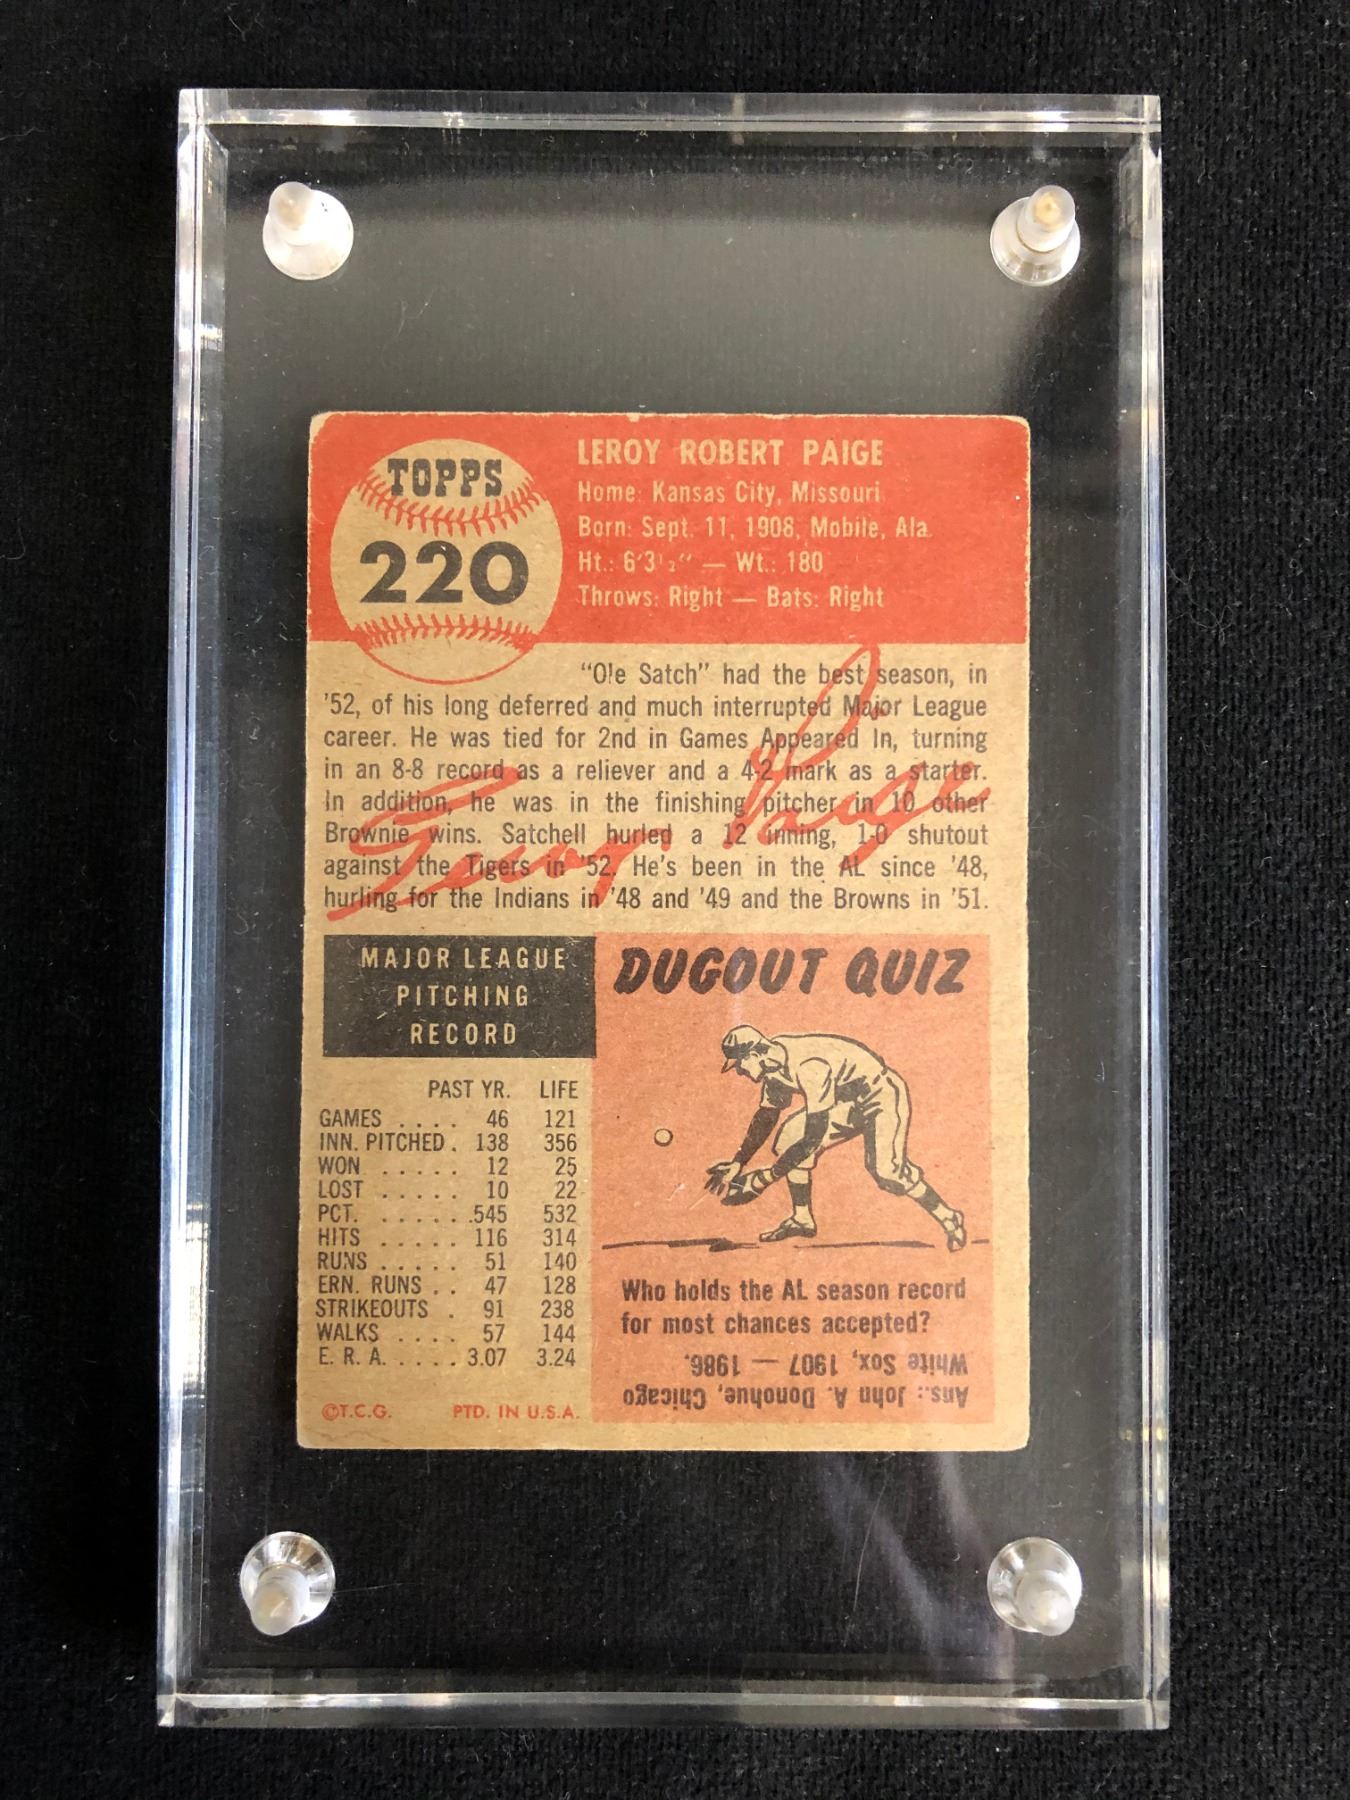 TOPPS
220
LEROY ROBERT PAIGE
Home: Kansas City, Missouri
Born: Sept. 11, 1908, Mobile, Ala.
Ht.: 6'3½" — Wt.: 180
Throws: Right — Bats: Right
"Ole Satch" had the best season, in
'52, of his long deferred and much interrupted Major League
career. He was tied for 2nd in Games Appeared In, turning
in an 8-8 record as a reliever and a 4-2 mark as a starter.
In addition, he was in the finishing pitcher in 10 other
Brownie wins. Satchell hurled a 12 inning, 1-0 shutout
against the Tigers in '52. He's been in the AL since '48,
hurling for the Indians in '48 and '49 and the Browns in '51.
MAJOR LEAGUE
PITCHING
RECORD
PAST YR. LIFE
GAMES . . . . 46 121
INN. PITCHED . 138 356
WON . . . . . 12 25
LOST . . . . . 10 22
PCT. . . . . . .545 532
HITS . . . . . 116 314
RUNS . . . . . 51 140
ERN. RUNS . . 47 128
STRIKEOUTS . 91 238
WALKS . . . . 57 144
E. R. A. . . . . 3.07 3.24
©T.C.G. PTD. IN U.S.A.
DUGOUT QUIZ
Who holds the AL season record
for most chances accepted?
Ans.: John A. Donohue, Chicago
White Sox, 1907 — 1986.